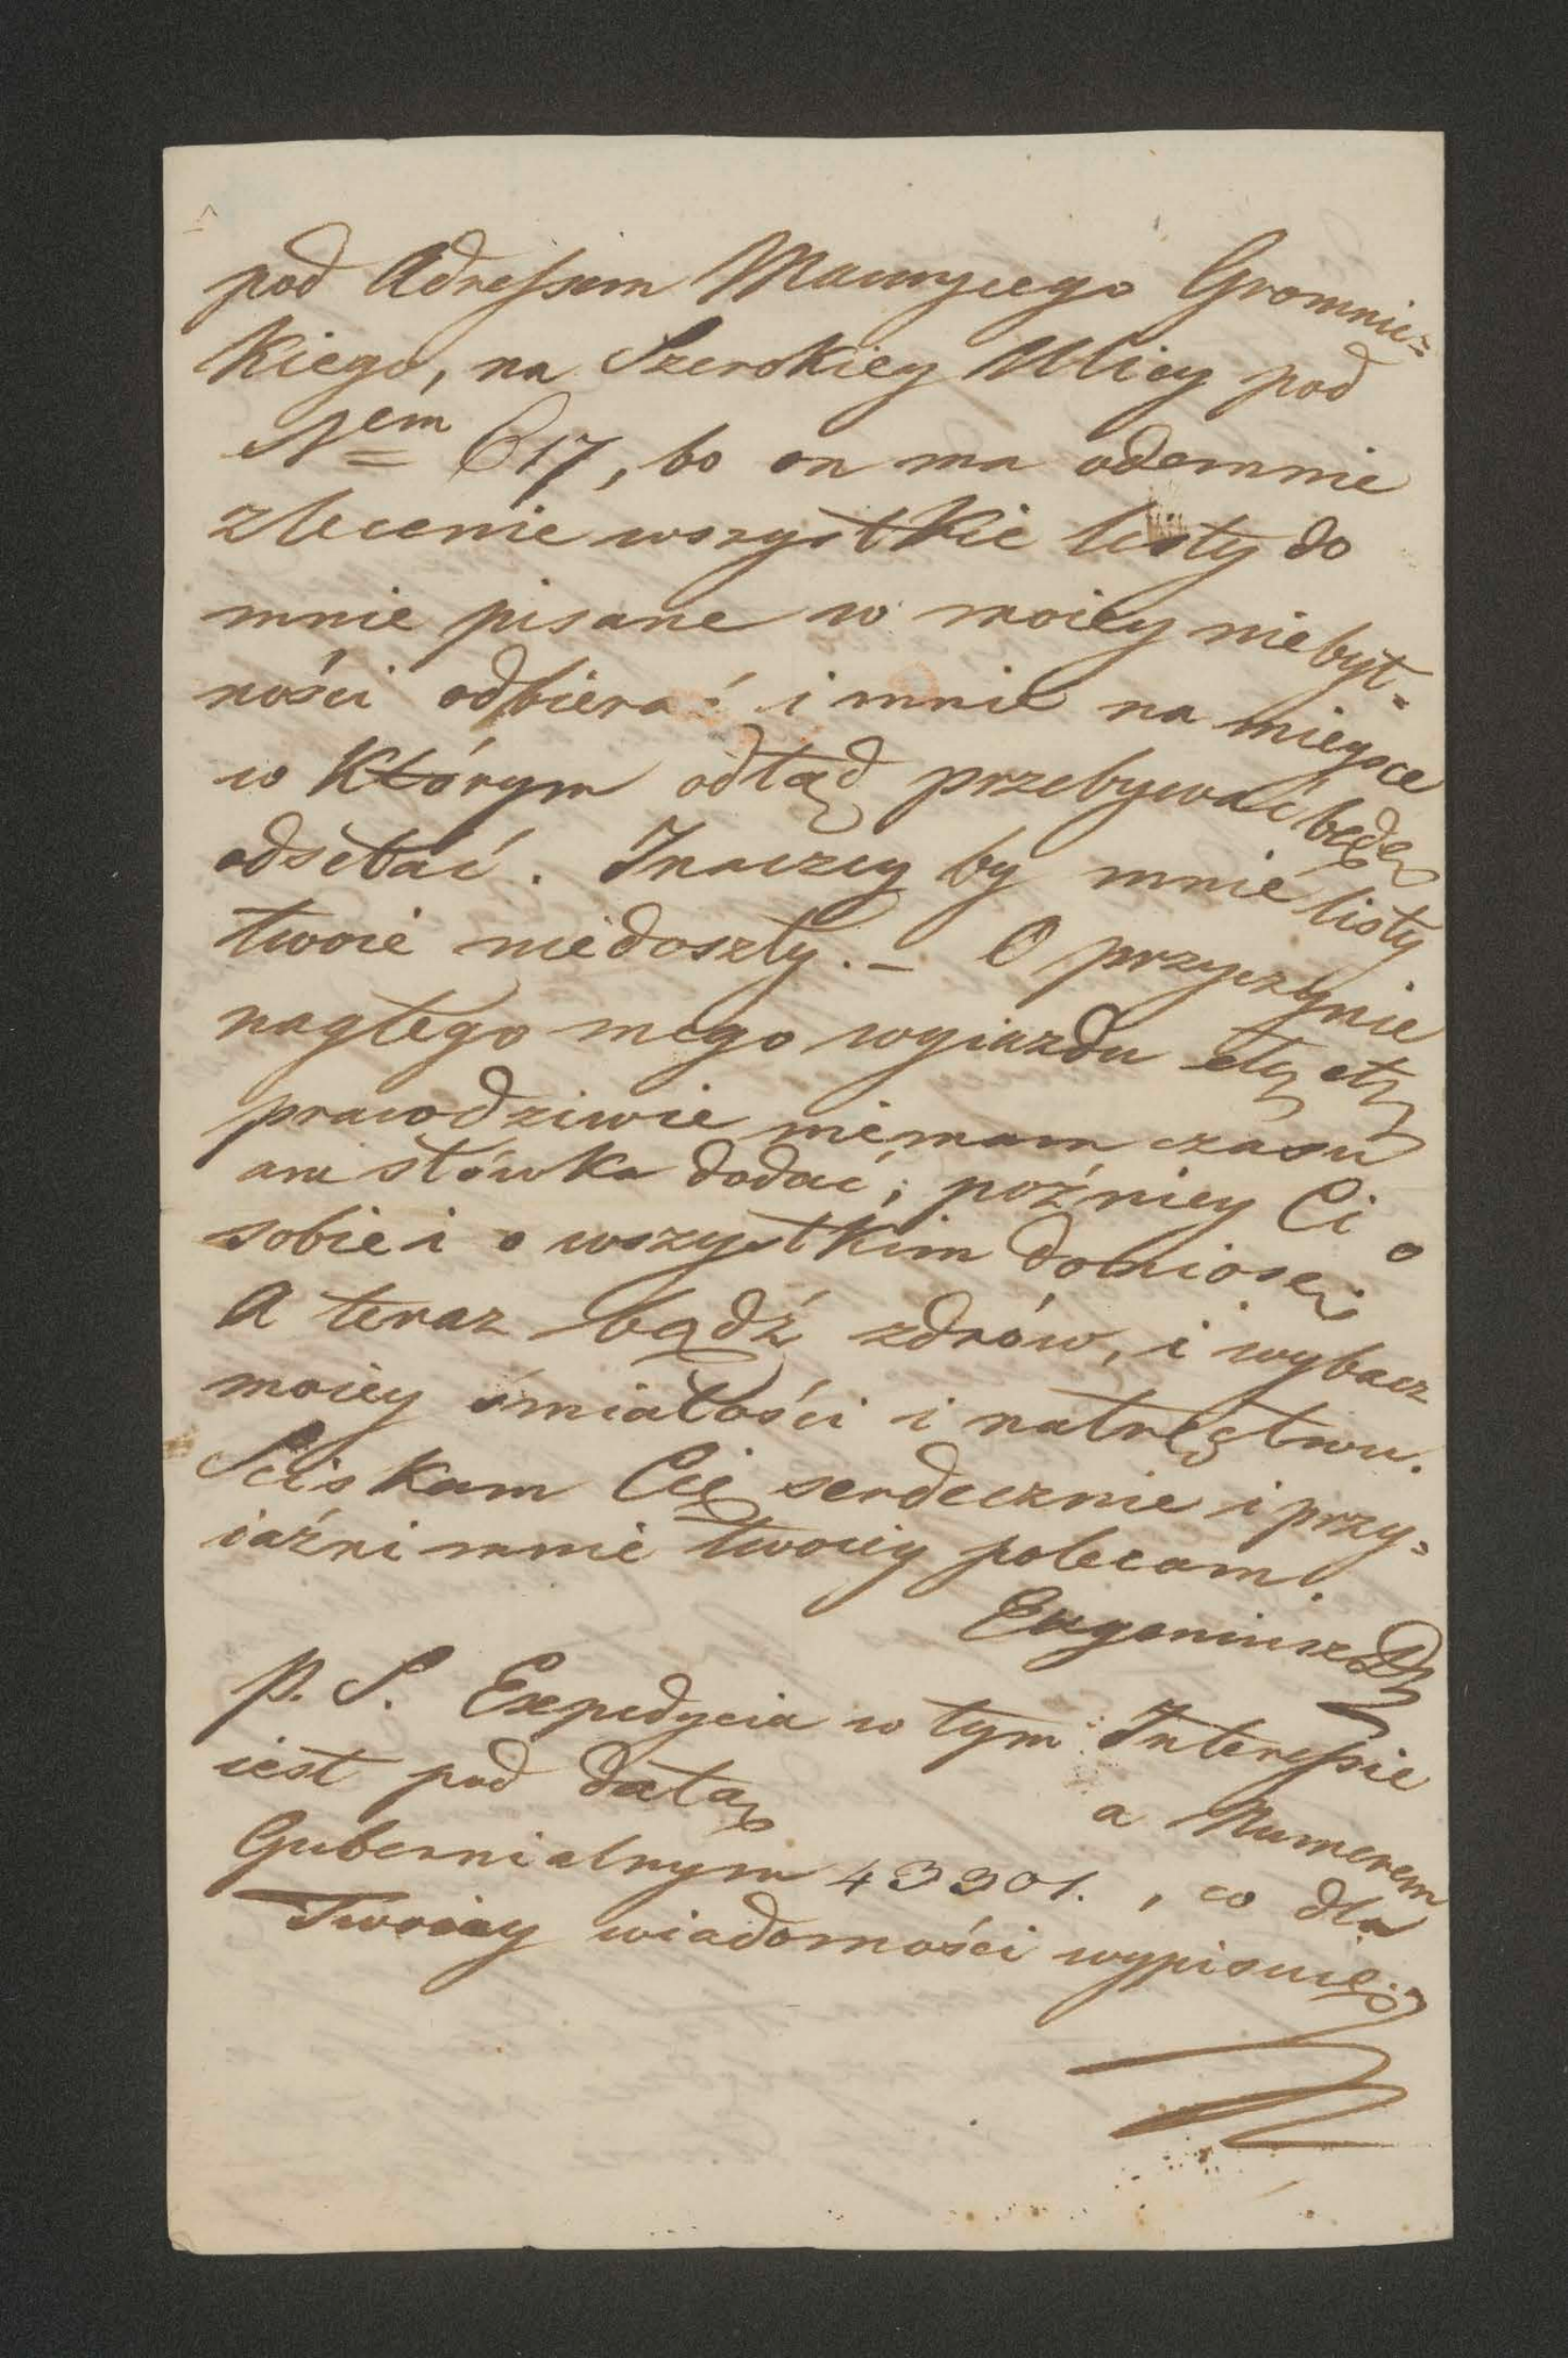 pod Adressem Maurycego Gromnic=
kiego, na Szerokiey Ulicy pod
Nem 617, bo on ma odemnie
zlecenie wszystkie listy do
mnie pisane w moiey niebyt=
ności odbierać i mnie na mieysce
w którym odtąd przebywać będę
odsełać. Inaczey by mnie listy
twoie niedoszły. – O przyczynie
nagłego mego wyiazdu etz etz
prawdziwie niemam czasu
ani słówka dodać; poźniey Ci o
sobie i o wszystkim doniosę;
A teraz bądź zdrów, i wybacz
moiey śmiałości i natręctwu.
Sciskam Cię serdecznie i przy=
iaźni mnie twoiey polecam.
Eugeniusz
P. S. Expedycia w tym Interessie
iest pod datą a Numerem
Gubernialnym 43301. , co dla
Twoiey wiadomości wypisuię.